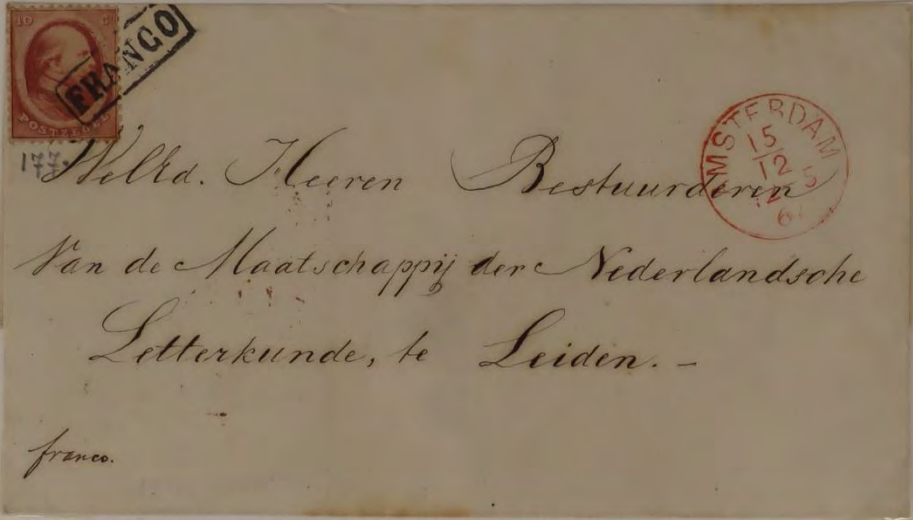 10 C
POSTZEGEL
FRANCO
177.
AMSTERDAM
15
12
12 5
6
WelEd. Heeren Bestuurderen
Van de Maatschappij der Nederlandsche
Letterkunde, te Leiden. -
franco.